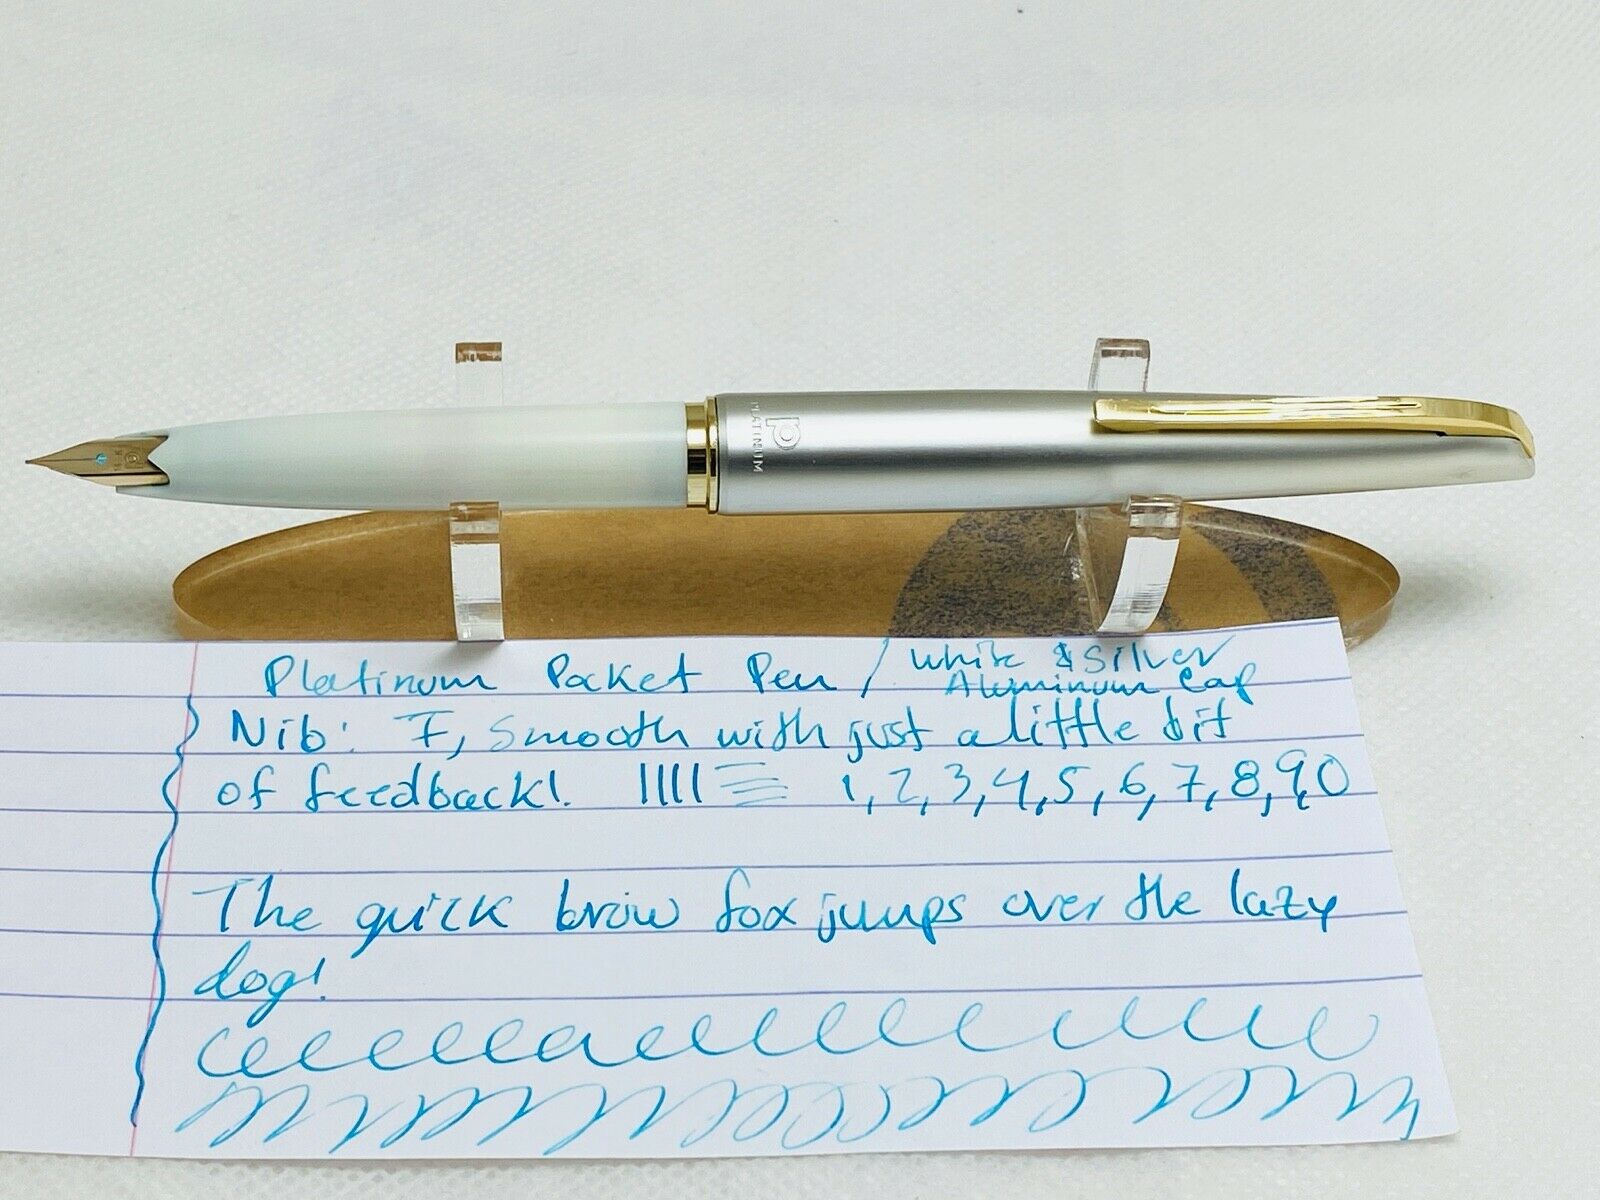 PLATINUM
Platinum Pocket Pen / White & Silver
Aluminum Cap
Nib: F, Smooth with just a little bit
of feedback! 1, 2, 3, 4, 5, 6, 7, 8, 9, 0
The quick brow fox jumps over the lazy
dog!